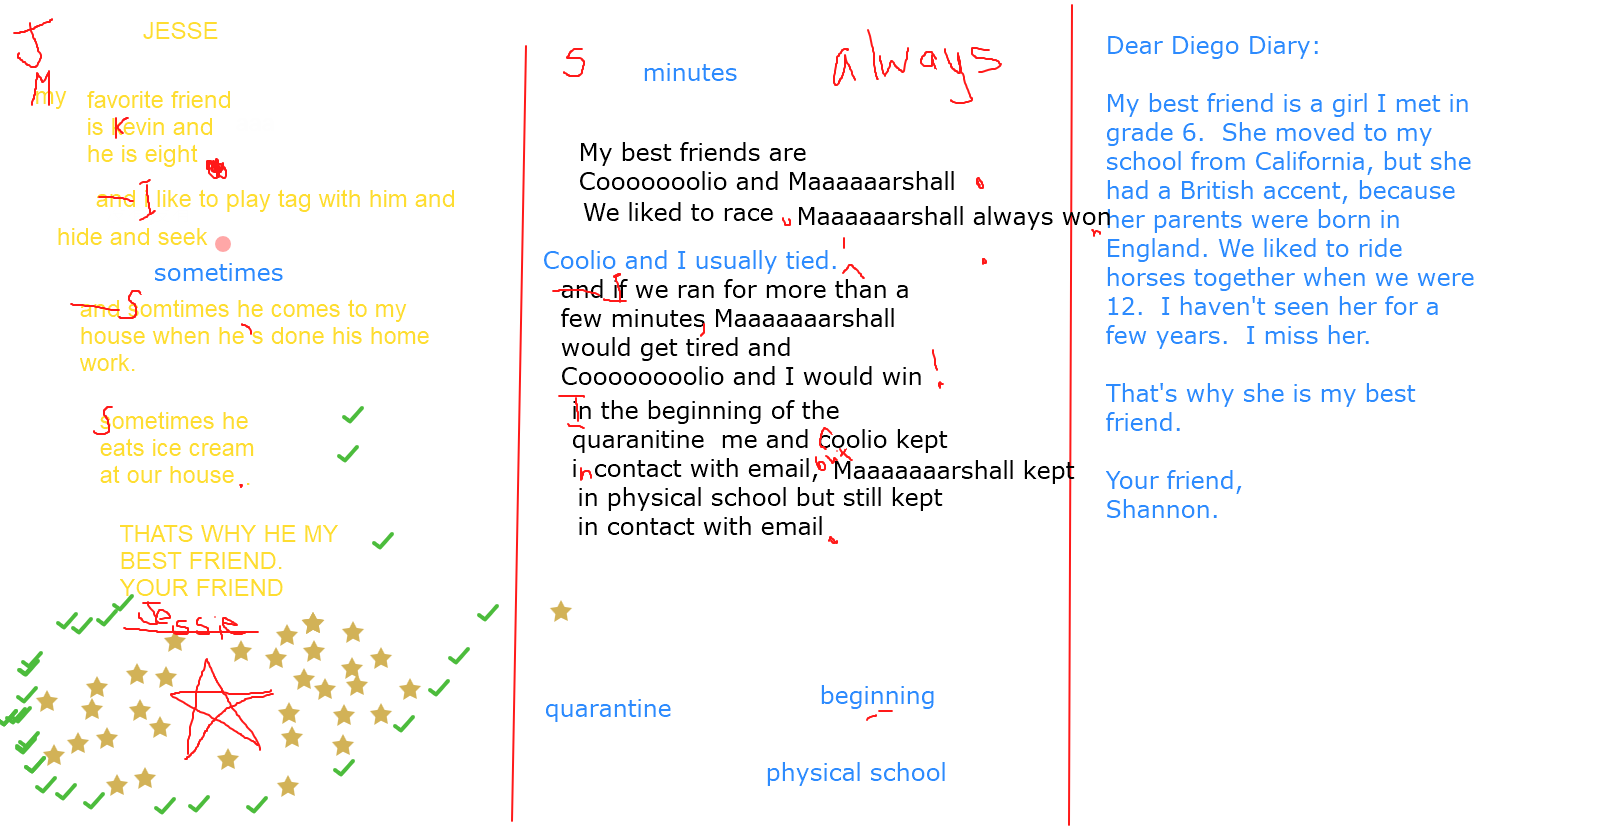 J
JESSE
M
my favorite friend
is Kevin and
he is eight
and I like to play tag with him and
hide and seek
sometimes
and Somtimes he comes to my
house when he's done his home
work.
Sometimes he
eats ice cream
at our house.
THATS WHY HE MY
BEST FRIEND.
YOUR FRIEND
Jessie
S
minutes
always
My best friends are
Cooooooolio and Maaaaaarshall .
We liked to race , Maaaaaarshall always won
Coolio and I usually tied.
and If we ran for more than a
few minutes, Maaaaaaarshall
would get tired and
Coooooooolio and I would win !
In the beginning of the
quaranitine me and Coolio kept
in contact with email, but Maaaaaaarshall kept
in physical school but still kept
in contact with email.
quarantine
beginning
physical school
Dear Diego Diary:
My best friend is a girl I met in
grade 6. She moved to my
school from California, but she
had a British accent, because
her parents were born in
England. We liked to ride
horses together when we were
12. I haven't seen her for a
few years. I miss her.
That's why she is my best
friend.
Your friend,
Shannon.